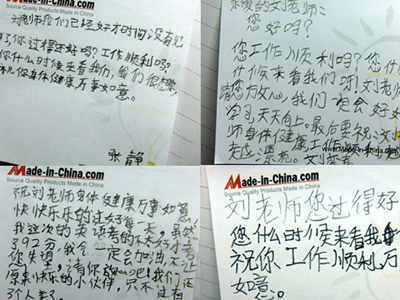 刘老师我们已经好才时间没有见
了,你过得还好吗?工作顺利吗?
你什么时候来看我们,我们很想您
祝你身体健康万事如意。
张静
亲爱的刘老师:
您好吗?
您工作顺利吗?您什
什候来看我们呀,刘老
请您方心,我们会好好
学习,天天向上。最后要祝
师身体健康工
www.made-in-china.com
Made-in-China.com
Source Quality Products Made in China
祝刘老师身体健康万事如意
快快乐乐的过好每一天,虽然
我这次的英语考的不大好才考
了92分,我会一定会加油不让
您失望,请你 吧!我们还
原来快乐的小伙伴,只不过有
Made-in-China.com
Source Quality Products Made in China
刘老师您过得好
您什么时候来看我
祝你工作顺利万
如意。